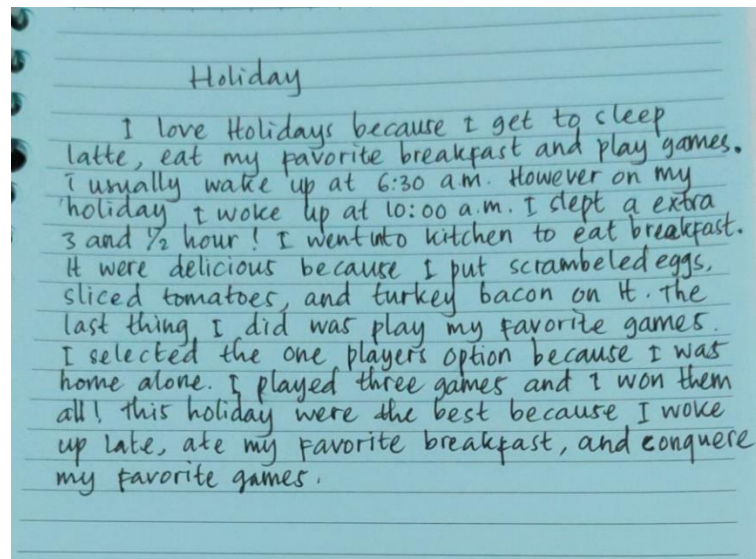 Holiday
I love Holidays because I get to sleep
latte, eat my favorite breakfast and play games.
I usually wake up at 6:30 a.m. However on my
holiday I woke up at 10:00 a.m. I slept a extra
3 and ½ hour! I went into kitchen to eat breakfast.
It were delicious because I put scrambeled eggs,
sliced tomatoes, and turkey bacon on it. The
last thing I did was play my favorite games.
I selected the one players option because I was
home alone. I played three games and I won them
all! this holiday were the best because I woke
up late, ate my favorite breakfast, and conquere
my favorite games.